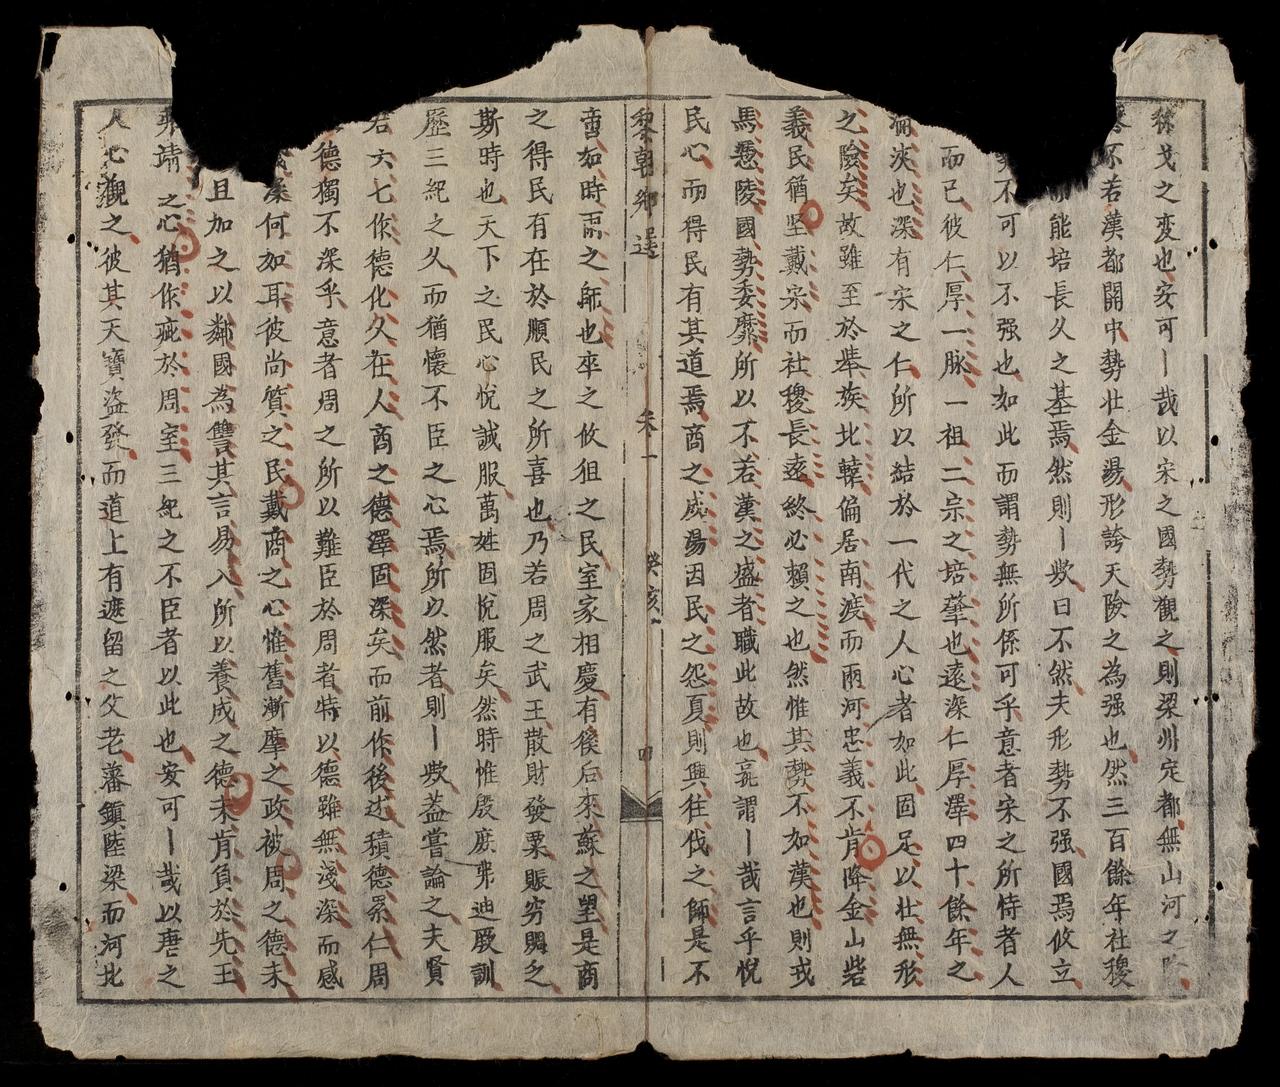 戈之変也安可丨哉以宋之國勢觀之則梁州定都無山河之
不若漢都開中勢壮金湯形誇天險之為强也然三百餘年社稷
能培長久之基焉然則丨欤曰不然夫形勢不强國焉攸立
不可以不强也如此而謂勢無所係可乎意者宋之所恃者人
而已彼仁厚一脉一祖二宗之培肇也遠深仁厚澤四十餘年之
淡也深有宋之仁所以結於一代之人心者如此固足以壮無形
之險矣故雖至於舉族北轅偏居南渡而兩河忠義不肯降金山砦
義民猶坚戴宋而社稷長遠終必賴之也然惟其勢不如漢也則戎
馬憑陵國勢委靡所以不若漢之盛者職此故也亮謂丨哉言乎悅
民心而得民有其道焉商之成湯因民之怨夏則興往伐之師是不
黎朝鄉選
癸亥
四
啻如時雨之師也卒之攸徂之民室家相慶有徯后來蘇之望是商
之得民有在於順民之所喜也乃若周之武王散財發粟賑穷賙乏
斯時也天下之民心悅誠服萬姓固悅服矣然時惟殷庶弗迪厥訓
歷三紀之久而猶懷不臣之心焉所以然者則丨欤蓋嘗論之夫賢
六七作德化久在人商之德澤固深矣而前作後述積德累仁周
德獨不深乎意者周之所以難臣於周者特以德雖無淺深而感
深何如耳彼尚質之民戴商之心惟舊漸摩之政被周之德未
且加之以鄰國為讐其言易入所以養成之德未肯負於先王
靖之心猶作疵於周室三紀之不臣者以此也安可丨哉以唐之
人心觀之彼其天寶盜發而道上有遮留之父老藩鎭陸梁而河北